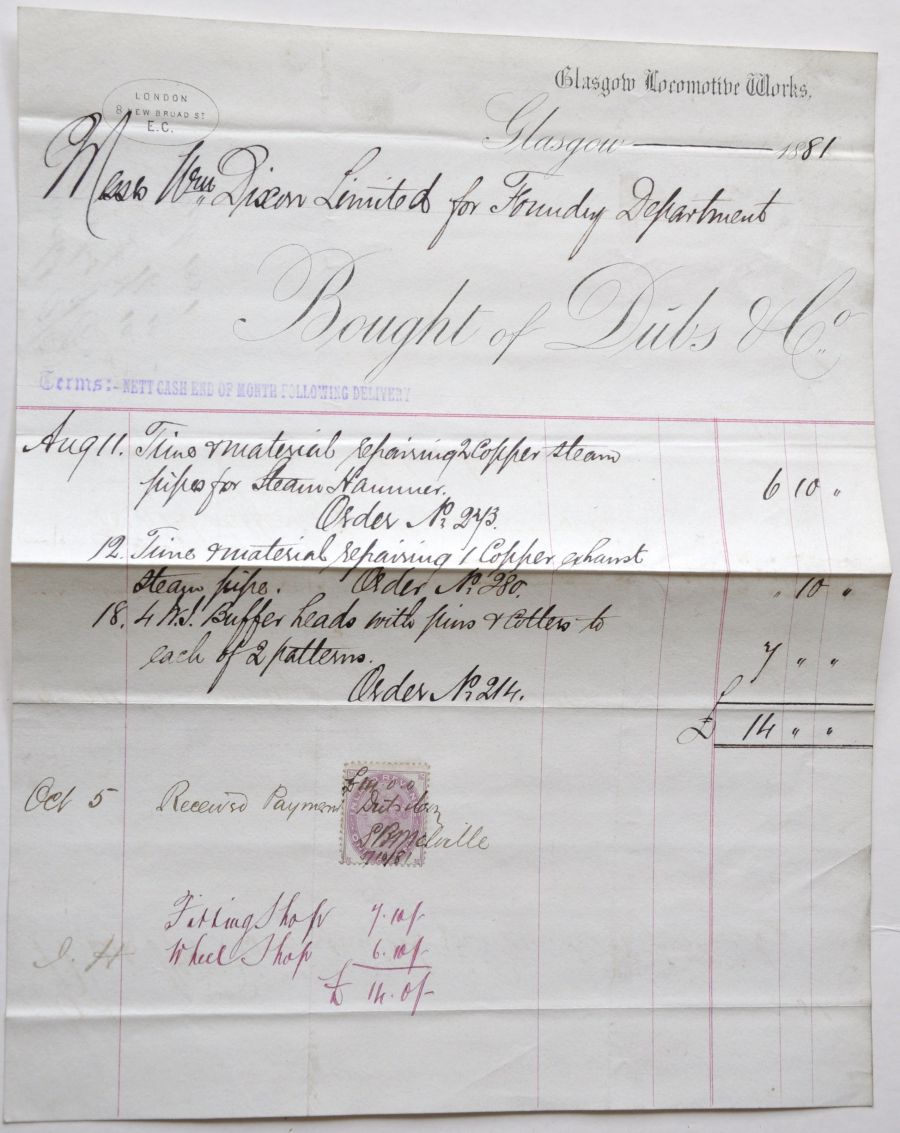 Glasgow Locomotive Works.
LONDON
8 NEW BROAD ST
E.C.
Glasgow 1881
Messrs Wm. Dixon Limited for Foundry Department
Bought of Dübs & Co.
Terms:- NETT CASH END OF MONTH FOLLOWING DELIVERY
Aug 11. Time & material repairing 2 Copper steam
pipes for Steam Hammer. 6 10 "
Order No. 273.
12. Time & material repairing 1 Copper exhaust
steam pipe. Order No. 280. " 10 "
18. 4 W.I. Buffer heads with pins & Cotters to
each of 2 patterns. 7 " "
Order No. 214.
£ 14 " "
£14 0 0
Oct 5 Received Payment Dubs & Coy
Melville
Fitting Shop 7.10/-
J. H Wheel Shop 6.10/-
£ 14.0/-